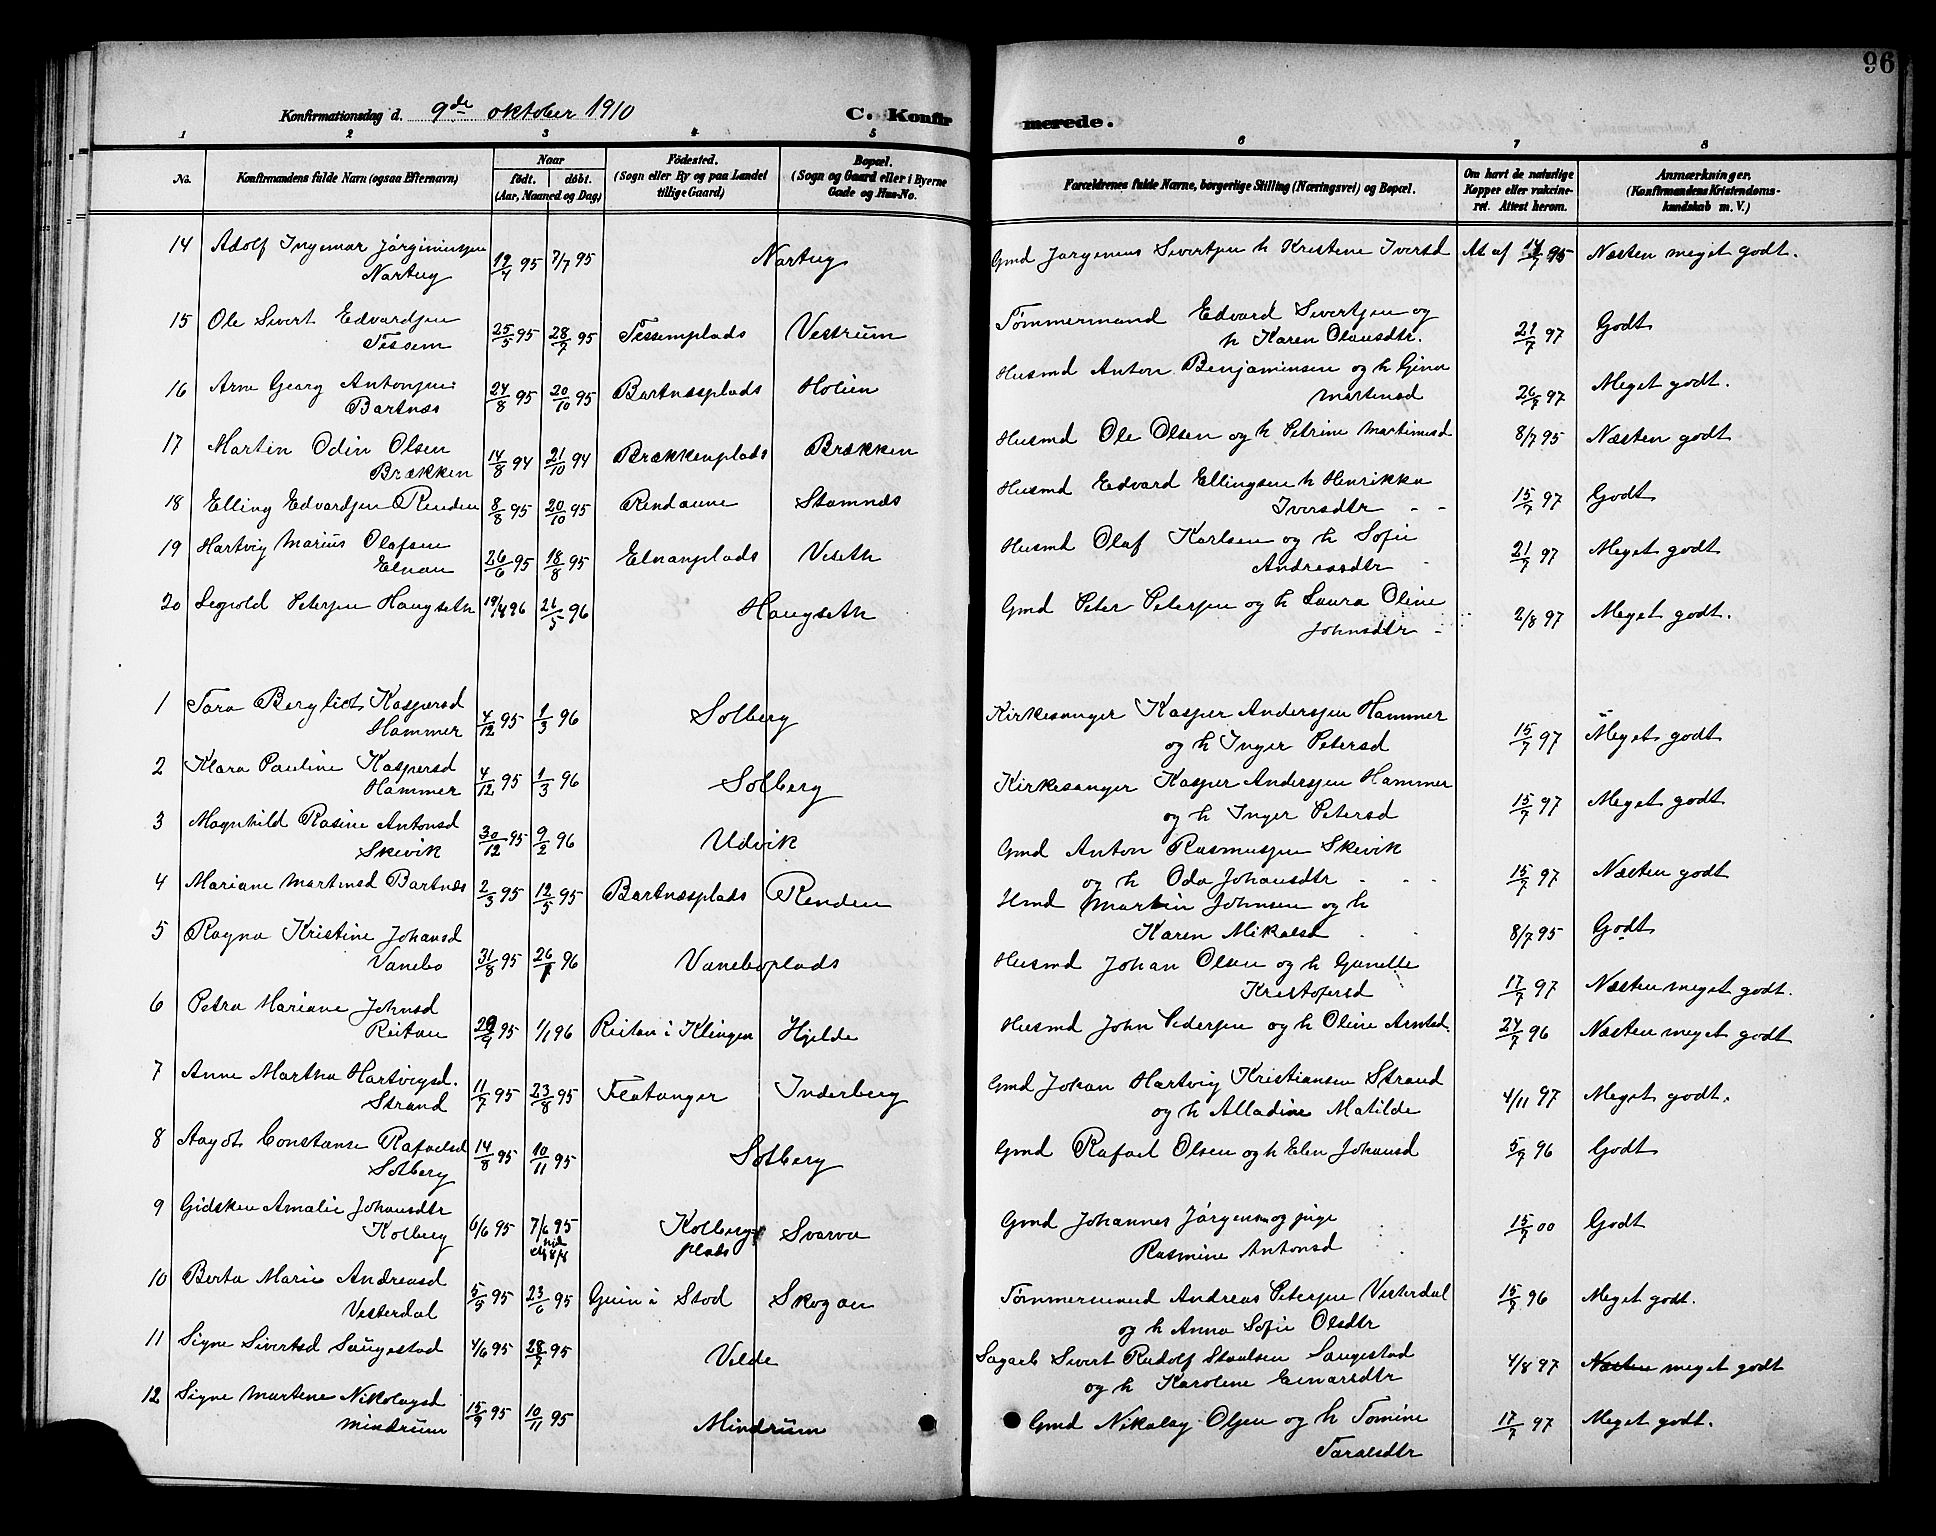 96
Konfirmationsdag d. 9de oktober 1910 C. Konfirmerede.
1 2 3 4 5 6 7 8
No.
Konfirmandens fulde Navn (ogsaa Efternavn)
Naar
födt. döbt.
(Aar, Maaned og Dag)
Födested.
(Sogn eller By og paa Landet
tillige Gaard)
Bopæl.
(Sogn og Gaard eller i Byerne
Gade og Hus-No.
Forældrenes fulde Navne, borgerlige Stilling (Næringsvei) og Bopæl.
Om havt de naturlige
Kopper eller vaksine-
ret. Attest herom.
Anmærkninger.
(Konfirmandens Kristendoms-
kundskab m. V.)
14 Adolf Ingemar Jørginussen
Nartug 19/4 95 7/7 95 Nartug Gmd Jørgenus Sivertsen h Kristene Iversd At af 14/7 95 Næsten meget godt.
15 Ole Sivert Edvardsen
Tessem 25/5 95 28/7 95 Tessemplads Vestrum Tømmermand Edvard Sivertsen og
h Karen Olausdtr. 21/7 97 Godt
16 Arne Georg Antonsen
Bartnæs 24/8 95 20/10 95 Bartnæsplads Holien Husmd Anton Benjaminsen og h Gina
Martinsd 26/7 97 Meget godt.
17 Martin Odin Olsen
Brækken 14/8 94 21/10 94 Brækkenplads Brækken Husmd Ole Olsen og h Petrine Martinusd 8/7 95 Næsten godt
18 Elling Edvardsen Renden 8/8 95 20/10 95 Rendaune Stamnæs Husmd Edvard Ellingsen h Henrikka
Iversdtr 15/7 97 Godt
19 Hartvig Marius Olafsen
Elnan 26/6 95 18/8 95 Elnanplads Viseth Husmd Olaf Karlsen og h Sofie
Andreasdtr 21/7 97 Meget godt
20 Leopold Petersen Haugseth 19/4 96 26/5 96 Haugseth Gmd Peter Petersen og h Laura Oline
Johnsdtr 2/8 97 Meget godt.
1 Tora Bergliot Kaspersd
Hammer 4/12 95 1/3 96 Solberg Kirkesanger Kasper Andersen Hammer
og h Inger Petersd 15/7 97 Meget godt
2 Klara Pauline Kaspersd
Hammer 4/12 95 1/3 96 Solberg Kirkesanger Kasper Andersen Hammer
og h Inger Petersd 15/7 97 Meget godt
3 Magnhild Rasine Antonsd
Skevik 30/12 95 9/2 96 Udvik Gmd Anton Rasmussen Skevik
og h Oda Johansdtr 15/7 97 Næsten godt
4 Mariane Martinsd Bartnæs 2/3 95 12/5 95 Bartnæsplads Renden Hmd Martin Johnsen og h
Karen Mikalsd 8/7 95 Godt
5 Ragna Kristine Johansd
Vanebo 31/8 95 26/1 96 Vaneboplads Husmd Johan Olsen og h Gunelle
Kristofersd 17/7 97 Næsten meget godt.
6 Petra Mariane Johnsd
Reitan 29/9 95 1/1 96 Reitan i Klingen Hjelde Husmd John Pedersen og h Oline Arntsd. 24/7 96 Næsten meget godt
7 Anne Martha Hartvigsd.
Strand 11/7 95 23/8 95 Flatanger Inderberg Gmd Johan Hartvig Kristiansen Strand
og h Alladine Matilde 4/11 97 Meget godt.
8 Aagot Constanse Rafaelsd
Solberg 14/8 95 10/11 95 Solberg Gmd Rafael Olsen og h Elen Johansd 5/7 96 Godt
9 Gidsken Amalie Johansdtr
Kolberg 6/6 95 7/6 95 Kolbergs
plads Svarva Gmd Johannes Jørgensen og pige
Rasmine Antonsd 15/7 00 Godt
10 Berta Marie Andreasd
Vesterdal 5/5 95 23/6 95 Guin i Stod Skogan Tømmermand Andreas Petersen Vesterdal
og h Anna Sofie Olsdtr 15/7 96 Meget godt.
11 Signe Sivertsd Saugestad 4/6 95 28/7 95 Velde Sagarb Sivert Rudolf Paulsen Saugestad
og h Karoline Einarsdtr 4/8 97 Næsten meget godt
12 Signe Martene Nikolaysd
Mindrum 15/9 95 10/11 95 Mindrum Gmd Nikolay Olsen og h Tomine
Taraldsdtr 17/7 97 Meget godt.